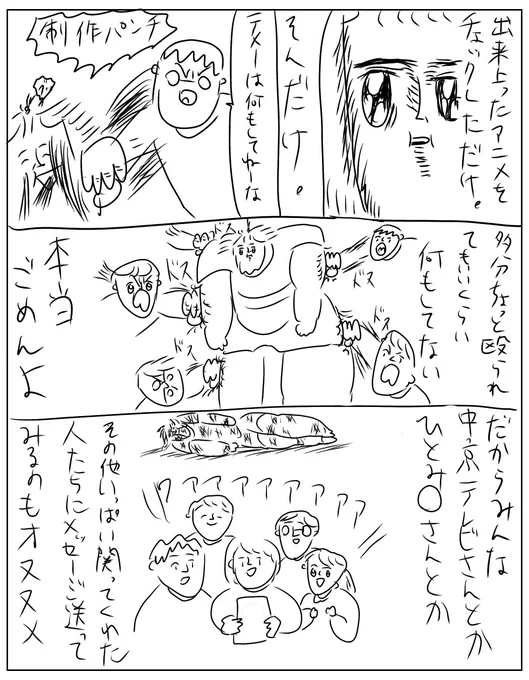 出来上ったアニメを
チェックしただけ。
そんだけ。
テメーは何もしてねーな
制作パンチ
多分ちょっと殴られ
てもいいくらい
何もしてない
ドス
ドス
ドス
ドス
ドス
本当
ごめんよ
だからみんな
中京テレビさんとか
ひとみ〇さんとか
ワァァァァァァァ
その他いっぱい関ってくれた
人たちにメッセージ送って
みるのもオススメ